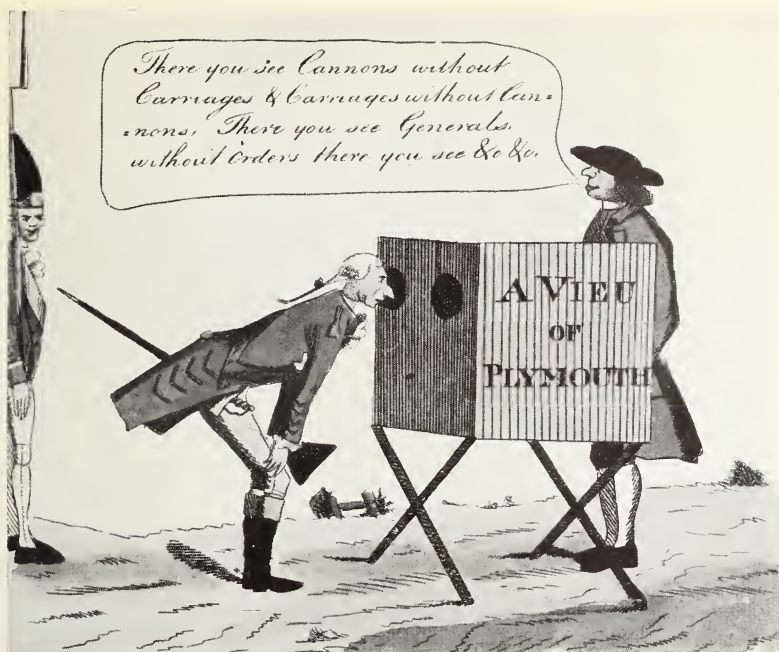 There you see Cannons without
Carriages & Carriages without Can=
=nons, There you see Generals.
without Orders there you see &c &c.
A VIEU
OF
PLYMOUTH